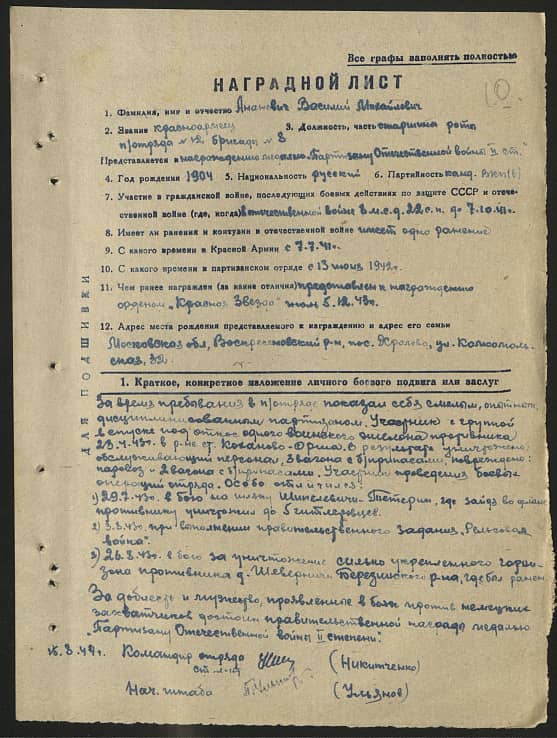 Все графы заполнять полностью
10.
НАГРАДНОЙ ЛИСТ
1. Фамилия, имя и отчество Ананевич Василий Михайлович
2. Звание красноармеец 3. Должность, часть старшина роты
п/отряда №12 бригады №8
Представляется к награждению медалью "Партизану Отечественной войны II ст."
4. Год рождения 1904 5. Национальность русский 6. Партийность канд. ВКП(б)
7. Участие в гражданской войне, последующих боевых действиях по защите СССР и отече-
ственной войне (где, когда) в отечественной войне в м.с.д. 22 с.п. до 7.10.41г.
8. Имеет ли ранения и контузии в отечественной войне имеет одно ранение
9. С какого времени в Красной Армии с 7.7.41г.
10. С какого времени в партизанском отряде с 13 июня 1942г.
11. Чем ранее награжден (за какие отличия) представлен к награждению
орденом "Красная Звезда" 5.12.43г.
12. Адрес места рождения представляемого к награждению и адрес его семьи
Московская обл, Воскресеновский р-н, пос. Хорлово, ул. Комсомоль-
ская, 32.
ДЛЯ ПОДШИВКИ
1. Краткое, конкретное изложение личного боевого подвига или заслуг
За время пребывания в п/отряде показал себя смелым, опытным,
дисциплинированным партизаном. Участник с группой
в спуске под откос одного воинского эшелона противника
23.4.43г. в р-не ст. Коханово-Орша. В результате уничтожено:
обслуживающий персонал, 3 вагона с б/припасами, повреждено:
паровоз и 2 вагона с б/припасами. Участник проведения боевых
операций отряда. Особо отличился:
1) 29.7.43г. в бою на шляху Шипелевичи-Гистерин, где зайдя во фланг
противнику уничтожил до 5 гитлеровцев.
2) 3.8.43г. при выполнении правительственного задания, "Рельсовая
война".
3) 26.8.43г. в бою за уничтожение сильно укрепленного гарни-
зона противника д. Шеверничи Березинского р-на, где был ранен.
За доблесть и мужество, проявленные в боях против немецких
захватчиков достоин правительственной награды медалью
"Партизану Отечественной войны II степени".
15.8.44г. Командир отряда (Никитченко)
ст. л-нт
Нач. штаба (Ульянов)